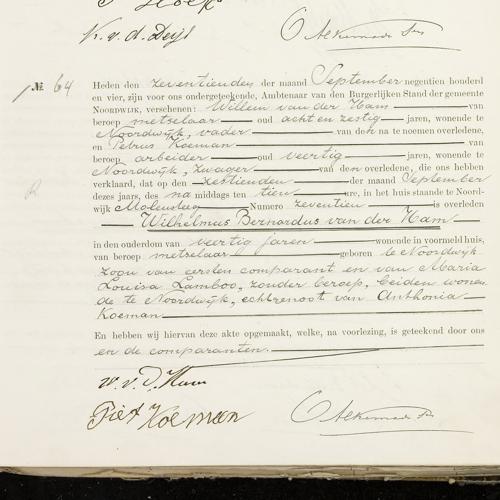 K. v. d. Deijl
№ 64
Heden den zeventienden der maand September negentien honderd
en vier, zijn voor ons ondergeteekende, Ambtenaar van den Burgerlijken Stand der gemeente
Noordwijk, verschenen: Willem van der Ham van
beroep metselaar oud acht en zestig jaren, wonende te
Noordwijk, vader van den na te noemen overledene,
en Petrus Koeman van
beroep arbeider oud veertig jaren, wonende te
Noordwijk, zwager van den overledene, die ons hebben
verklaard, dat op den zestienden der maand September
dezes jaars, des na middags ten tien ure, in het huis staande te Noord-
wijk Molensteeg Numero zeventien is overleden
Wilhelmus Bernardus van der Ham
in den ouderdom van veertig jaren wonende in voormeld huis,
van beroep metselaar geboren te Noordwijk
zoon van eersten comparant en van Maria
Louisa Lamboo, zonder beroep, beiden wonen
de te Noordwijk, echtgenoot van Anthonia
Koeman
En hebben wij hiervan deze akte opgemaakt, welke, na voorlezing, is geteekend door ons
en de comparanten.
W. v. D. Ham
Piet Koemen